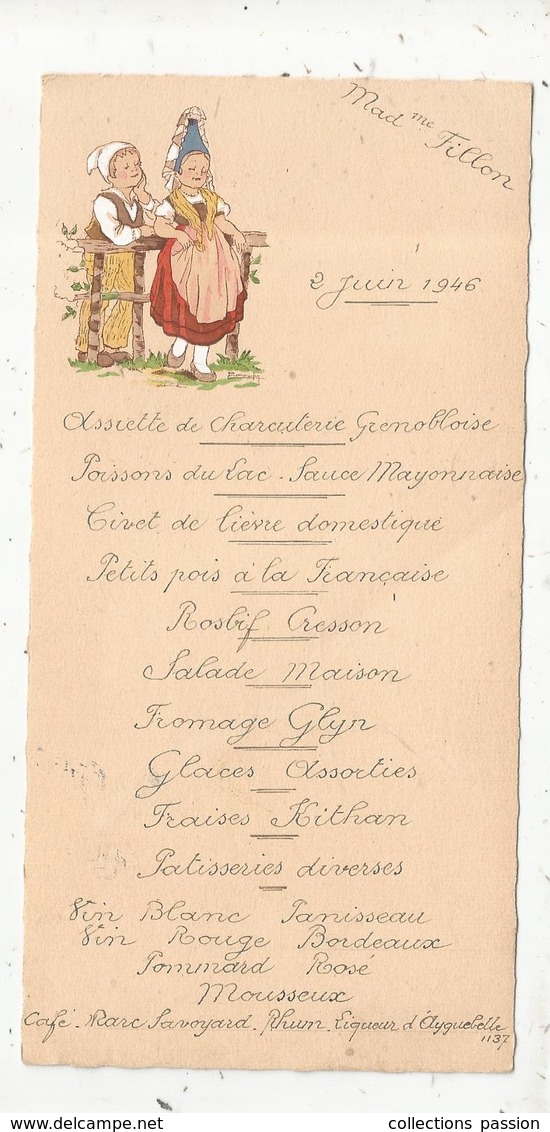 Mad me Fillon
2 Juin 1946
Assiette de Charcuterie Grenobloise
Poissons du Lac - Sauce Mayonnaise
Civet de lièvre domestique
Petits pois à la Française
Rosbif Cresson
Salade Maison
Fromage Glyn
Glaces Assorties
Fraises Kithan
Patisseries diverses
Vin Blanc Tanisseau
Vin Rouge Bordeaux
Pommard Rosé
Mousseux
Café - Marc Savoyard - Rhum - Liqueur d'Ayguebelle
1137
collections passion